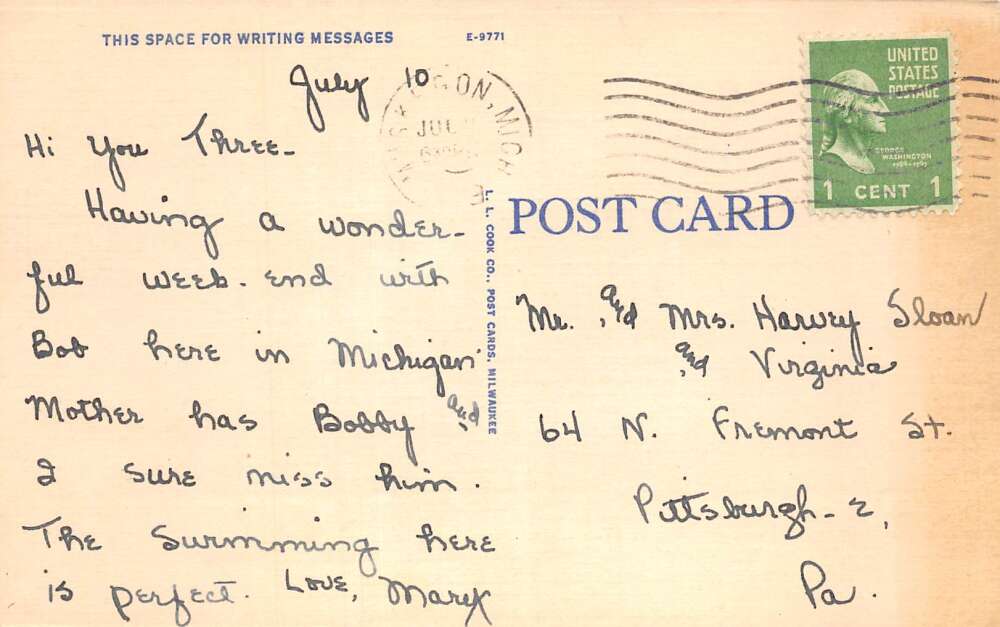 THIS SPACE FOR WRITING MESSAGES
E-9771
July 10
Hi You Three-
Having a wonder-
ful week-end with
Bob here in Michigan
Mother has Bobby and
I sure miss him.
The swimming here
is perfect. Love, Mary
MICH
JUL
L. L. COOK CO., POST CARDS, MILWAUKEE
UNITED
STATES
POSTAGE
GEORGE
WASHINGTON
1 CENT 1
POST CARD
Mr. and Mrs. Harvey Sloan
and Virginia
64 N. Fremont St.
Pittsburgh-2,
Pa.